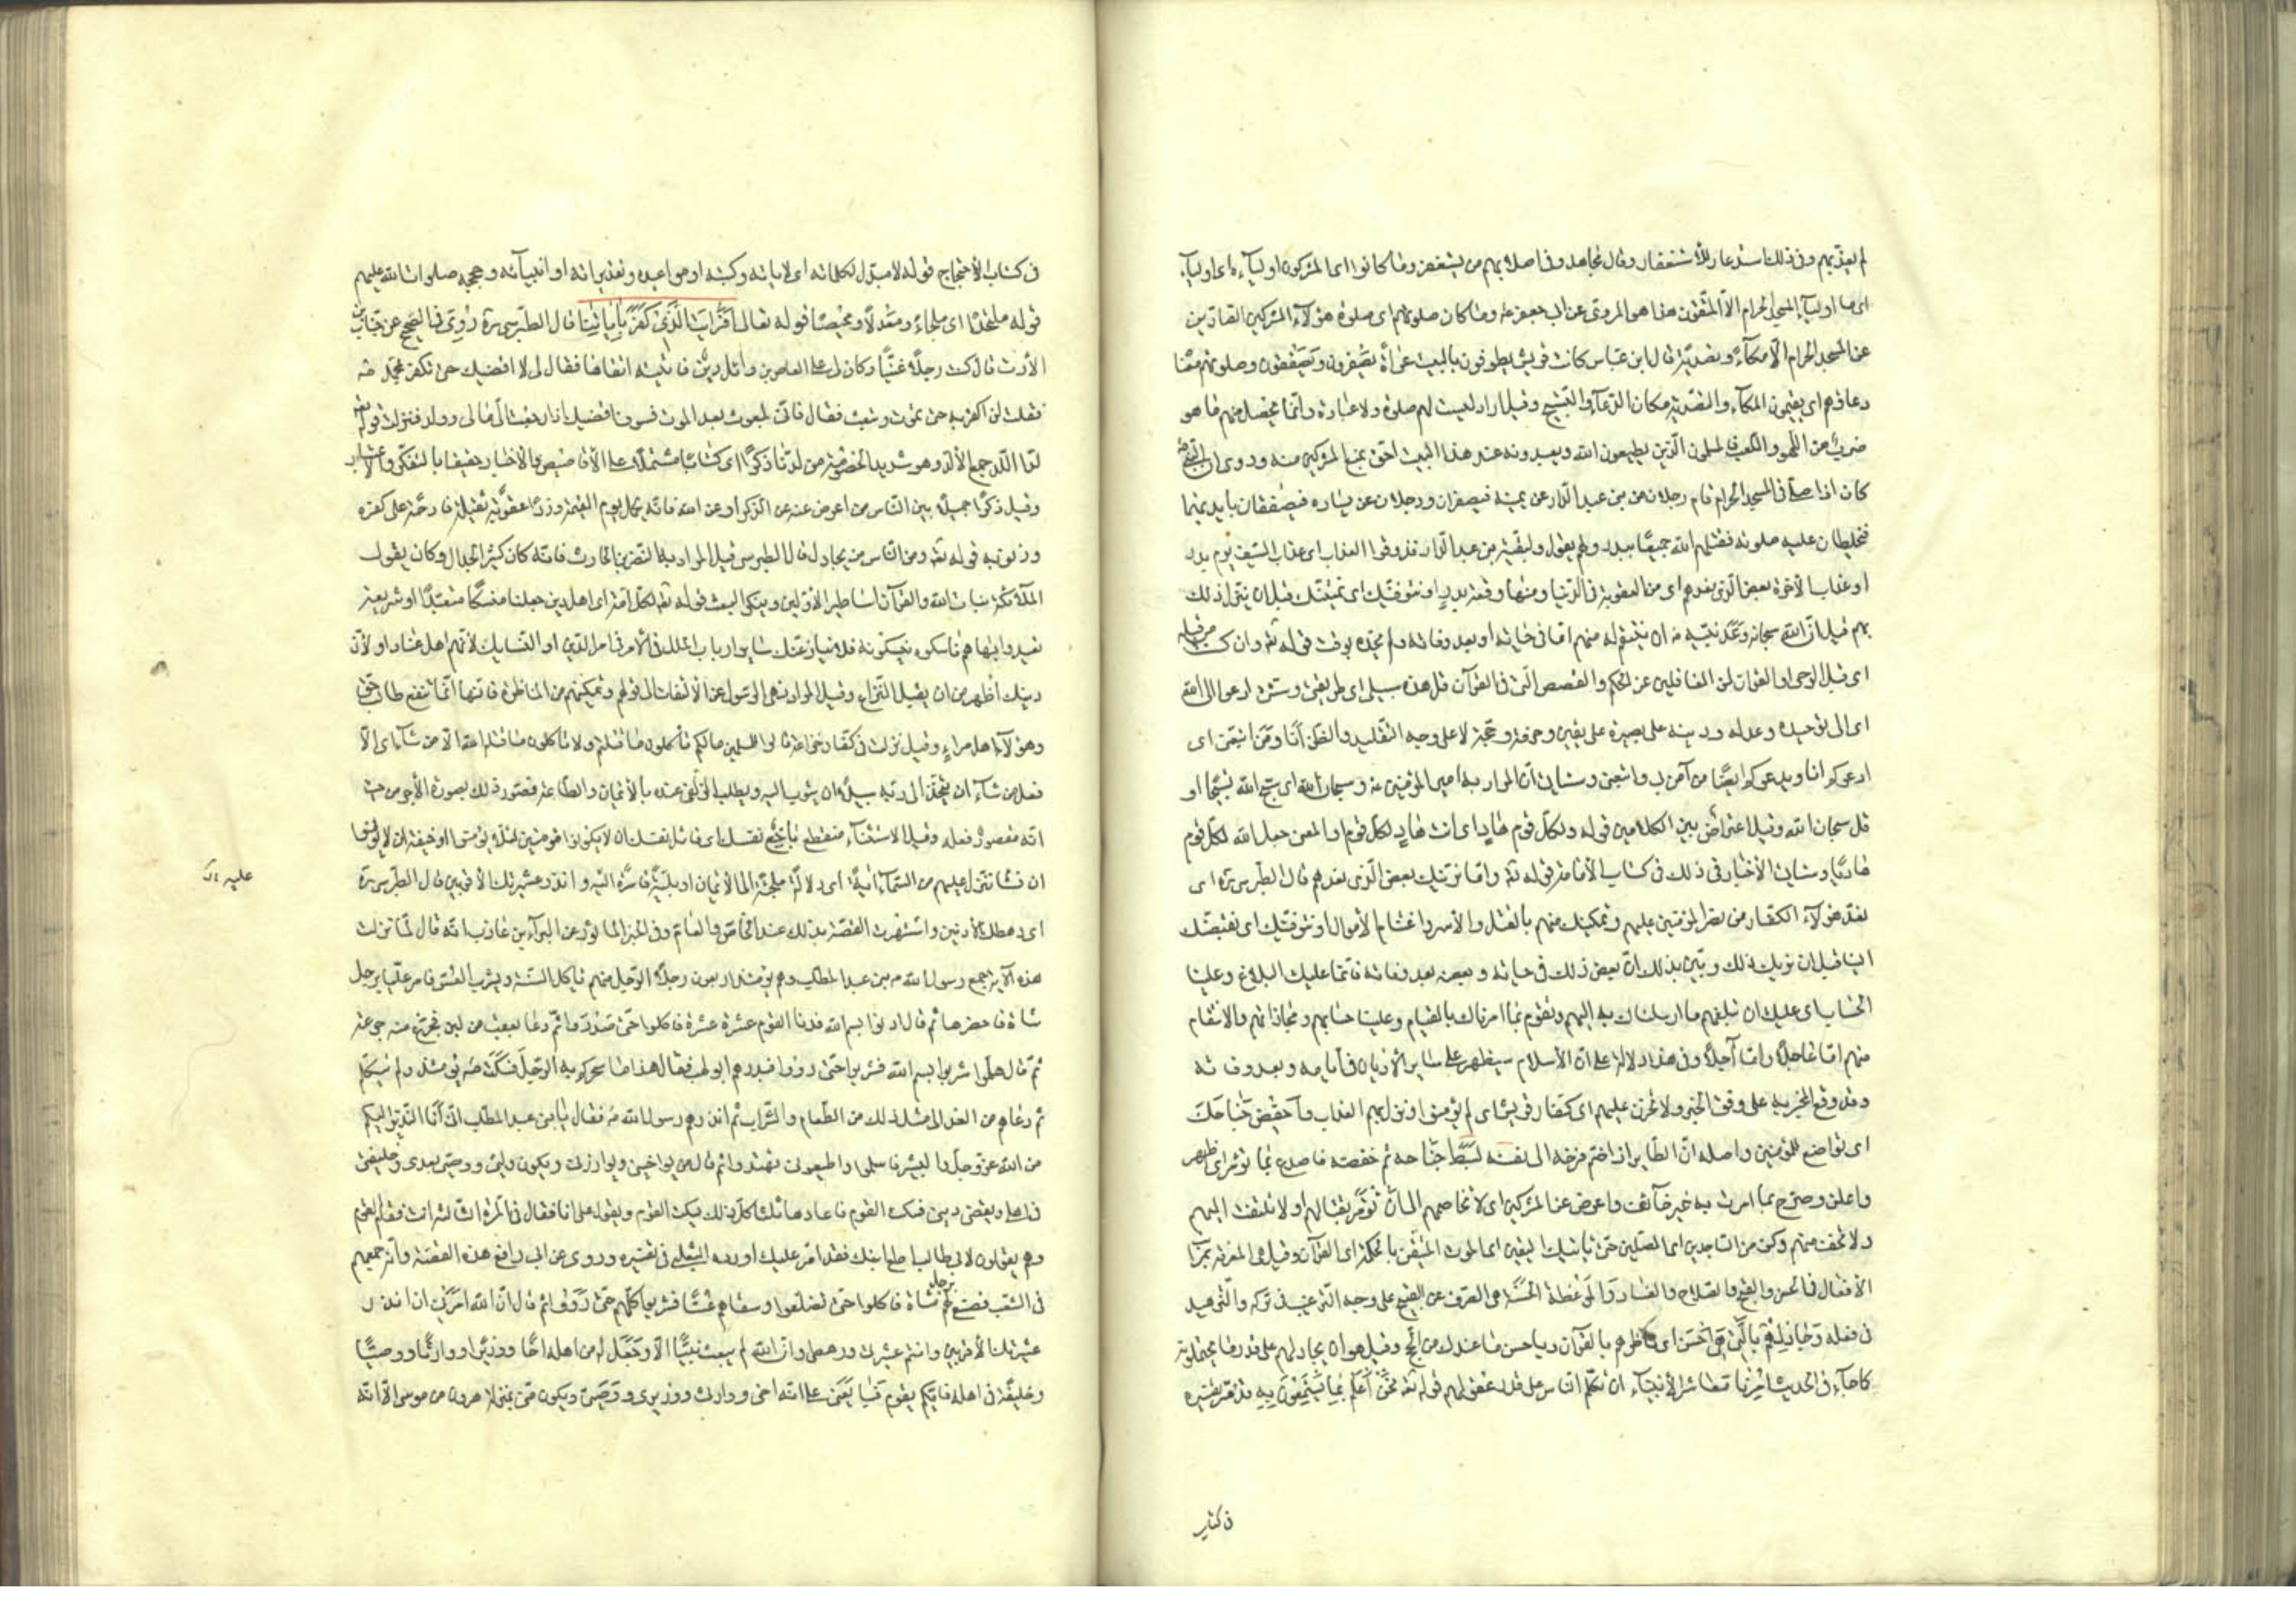 لم يعذبهم وفى ذلك استدعاء للأستغفار وقال مجاهد وفى اصلابهم من يستغفر وما كانوا اى المشركون اولياءه اى اولياء
اى ما اولياء المسجد الحرام الا المتقون هذا هو المروى عن ابى جعفر ع وما كان صلوتهم اى صلوة هؤلاء المشركين الصادين
عن المسجد الحرام الا مكاء وتصدية قال ابن عباس كانت قريش يطوفون بالبيت عراة يصفرون ويصفقون وصلوتهم معناه
دعاؤهم اى يقيمون المكاء والتصدية مكان الدعاء والتسبيح وقيل اراد ليست لهم صلوة ولا عبادة وانما يحصل منهم ما هو
ضرب من اللهو واللعب فالمسلمون الذين يطيعون الله ويعبدونه عند هذا البيت احق بمنع المشركين منه وروى ان النبى ص
كان اذا صلى فى المسجد الحرام قام رجلان من بنى عبد الدار عن يمينه فيصفران ورجلان عن يساره فيصفقان بايديهما
فيخلطان عليه صلوته فقتلهم الله جميعا ببدر ولهم يقول ولبقية بنى عبد الدار فذوقوا العذاب اى عذاب السيف يوم بدر
او عذاب الأخرة بعض الذى نعدهم اى من العقوبة فى الدنيا ومنها وقعة بدر او نتوفينك اى نميتنك قبل ان ينزل ذلك
بهم قيل ان الله سبحانه وعد نبيه ص ان ينتقم له منهم اما فى حياته او بعد وفاته ولم يحده بوقت قوله تعالى وان كنت من قبله
اى قبل الوحى او القران لمن الغافلين عن الحكم والقصص التى فى القرآن قل هذه سبيلى اى طريقى وسنتى ادعو الى الله
اى الى توحيده وعدله ودينه على بصيرة على يقين ومعرفة وحجة لا على وجه التقليد والظن أنا ومن اتبعنى اى
ادعوكم انا ويدعوكم ايضا من آمن بى واتبعنى وسياتى ان المراد به امير المؤمنين ع وسبحان الله اى سبح الله تسبيحا او
قل سبحان الله وقيل اعتراض بين الكلامين قوله ولكل قوم هاد اى انت هاد لكل قوم او المعنى جعل الله لكل قوم
هاديا وسياتى الأخبار فى ذلك فى كتاب الأمامة قوله تعالى واما نرينك بعض الذى نعدهم قال الطبرسى ره اى
نعد هؤلاء الكفار من نصر المؤمنين عليهم وتمكينك منهم بالقتل والأسر واغتنام الأموال او نتوفينك اى نقبضنك
الينا قبل ان نريك ذلك وبين بذلك ان بعض ذلك فى حياته وبعضه بعد وفاته فانما عليك البلاغ وعلينا
الحساب اى عليك ان تبلغهم ما ارسلناك به اليهم وتقوم بما امرناك بالقيام وعلينا حسابهم ومجازاتهم والانتقام
منهم اما عاجلا واما آجلا وفى هذا دلالة على ان الأسلام سيظهر على سائر الأديان فى أيامه وبعد وفاته
وقد وقع المخبر به على وفق الخبر ولا تحزن عليهم اى كفار قريش اى لم يؤمنوا ونزل بهم العذاب واخفض جناحك
اى تواضع للمؤمنين واصله ان الطاير اذا ضم فرخه الى نفسه بسط جناحه ثم خفضه فاصدع بما تؤمر اى اظهر
واعلن وصرح بما امرت به غير خائف واعرض عن المشركين اى لا تخاصمهم الى ان تؤمر بقتالهم او لا تلتفت اليهم
ولا تخف منهم وكن من الساجدين اى المصلين حتى ياتيك اليقين اى الموت المتيقن بالحكمة اى القرآن وقيل هى المعرفة بمراتب
الأفعال فى الحسن والقبح والصلاح والفساد والموعظة الحسنة هى الصرف عن القبيح على وجه الترغيب فى تركه والتزهيد
فى فعله وجادلهم بالتى هى احسن اى ناظرهم بالقرآن وباحسن ما عندك من الحجج وقيل هو ان يجادلهم على قدر ما يحتملونه
كما جاء فى الحديث امرنا معاشر الأنبياء ان نكلم الناس على قدر عقولهم قوله تعالى نحن أعلم بما يستمعون به قد مر تفسيره
فى كتاب
فى كتاب الأحتجاج قوله لا مبدل لكلماته اى لاياته وكتبه او مواعيده وتقديراته او انبيائه وحججه صلوات الله عليهم
قوله ملتحدا اى ملجاء ومعدلا ومحيصا قوله تعالى أفرأيت الذى كفر بآياتنا قال الطبرسى ره روى فى الصحيح عن خباب بن
الأرت قال كنت رجلا غنيا وكان لى على العاص بن وائل دين فاتيته اتقاضاه فقال لى لا اقضيك حتى تكفر بمحمد ص
فقلت لن اكفر به حتى تموت وتبعث فقال فانى لمبعوث بعد الموت فسوف اقضيك اذا رجعت الى مالى وولد فنزلت قوله تعالى
لدا اللد جمع الألد وهو شديد الخصومة من لدنا ذكرا اى كتابا مشتملا على الأقاصيص والأخبار حقيقا بالتفكر والأعتبار
وقيل ذكرا جميلا بين الناس من اعرض عنه عن الذكر او عن الله فانه يحمل يوم القيمة وزرا عقوبة ثقيلة فادحة على كفره
وذنوبه قوله تعالى ومن الناس من يجادل قال الطبرسى قيل المراد به النضر بن الحارث فانه كان كثير الجدال وكان يقول
الملائكة بنات الله والقرآن اساطير الأولين وينكر البعث قوله تعالى لكل امة اى اهل دين جعلنا منسكا متعبدا او شريعة
تعبدوا بها هم ناسكوه ينسكونه فلا ينازعنك سائر ارباب الملل فى الأمر فى امر الدين او النسايك لأنهم اهل عناد او لأن
دينك اظهر من ان يقبل النزاع وقيل المراد نهى الرسول عن الألتفات الى قولهم وتمكينهم من المناظرة فانها انما تنفع طالب حق
وهؤلاء اهل مراء وقيل نزلت فى كفار خزاعة قالوا للمسلمين ما لكم تأكلون ما قتلتم ولا تأكلون ما قتله الله الا من شاء اى الا
فعل من شاء ان يتخذ الى ربه سبيلا ان يتقرب اليه ويطلب الزلفى عنده بالأيمان والطاعة فصور ذلك بصورة الأجر من حيث
انه مقصود فعله وقيل الاستثناء منقطع باخع نفسك اى قاتل نفسك ان لا يكونوا مؤمنين لئلا يؤمنوا او خيفة ان لا يؤمنوا
ان نشأ ننزل عليهم من السماء آية اى دلالة ملجئة الى الأيمان او بلية قاسرة اليه وانذر عشيرتك الأقربين قال الطبرسى ره
عليه
اى رهطك الأدنين واشتهرت القصة بذلك عند الخاص والعام وفى الخبر الماثور عن البراء بن عازب انه قال لما نزلت
هذه الآية جمع رسول الله ص بنى عبد المطلب وهم يومئذ اربعون رجلا الرجل منهم ياكل المسنة ويشرب العس فامر عليا برجل
شاة فاحضرها ثم قال ادنوا بسم الله فدنا القوم عشرة عشرة فاكلوا حتى صدروا ثم دعا بقعب من لبن فجرع منه جرعة
ثم قال هلموا اشربوا بسم الله فشربوا حتى رووا فبدرهم ابو لهب فقال هذا ما سحركم به الرجل فسكت ص يومئذ ولم يتكلم
ثم دعاهم من الغد الى مثل ذلك من الطعام والشراب ثم انذرهم رسول الله ص فقال يا بنى عبد المطلب انى أنا النذير اليكم
من الله عز وجل والبشير فاسلموا واطيعونى تهتدوا ثم قال من يواخينى ويوازرنى ويكون وليى ووصيى بعدى وخليفتى
فى اهلى ويقضى دينى فسكت القوم فاعادها ثلثا كل ذلك يسكت القوم ويقول على انا فقال فى المرة الثالثة انت فقام القوم
وهم يقولون لابى طالب اطع ابنك فقد امر عليك اورده الثعلبى فى تفسيره وروى عن ابى رافع هذه القصة وانه جمعهم
فى الشعب فصنع لهم رجل شاة فاكلوا حتى تضلعوا وسقاهم عسا فشربوا كلهم حتى رووا ثم قال ان الله امرنى ان انذر
عشيرتك الأقربين وانتم عشيرتى ورهطى وان الله لم يبعث نبيا الا وجعل له من اهله اخا ووزيرا ووارثا ووصيا
وخليفة فى اهله فايكم يقوم فيبايعنى على انه اخى ووارثى ووزيرى ووصيى ويكون منى بمنزلة هرون من موسى الا انه